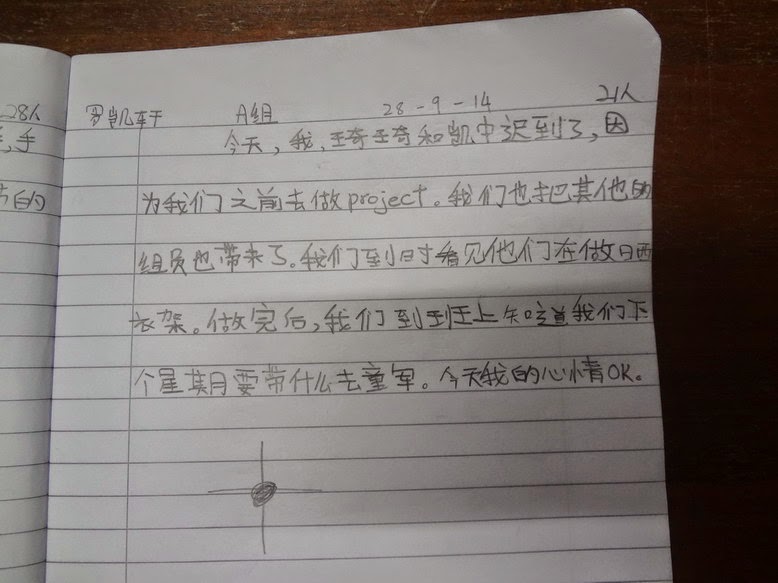 28人
手
的
罗凯轩 A组 28-9-14 21人
今天，我，琦琦和凯中迟到了，因
为我们之前去做project。我们也把其他的
组员也带来了。我们到时看见他们在做晒
衣架。做完后，我们到班上知道我们下
个星期要带什么去童军。今天我的心情OK。